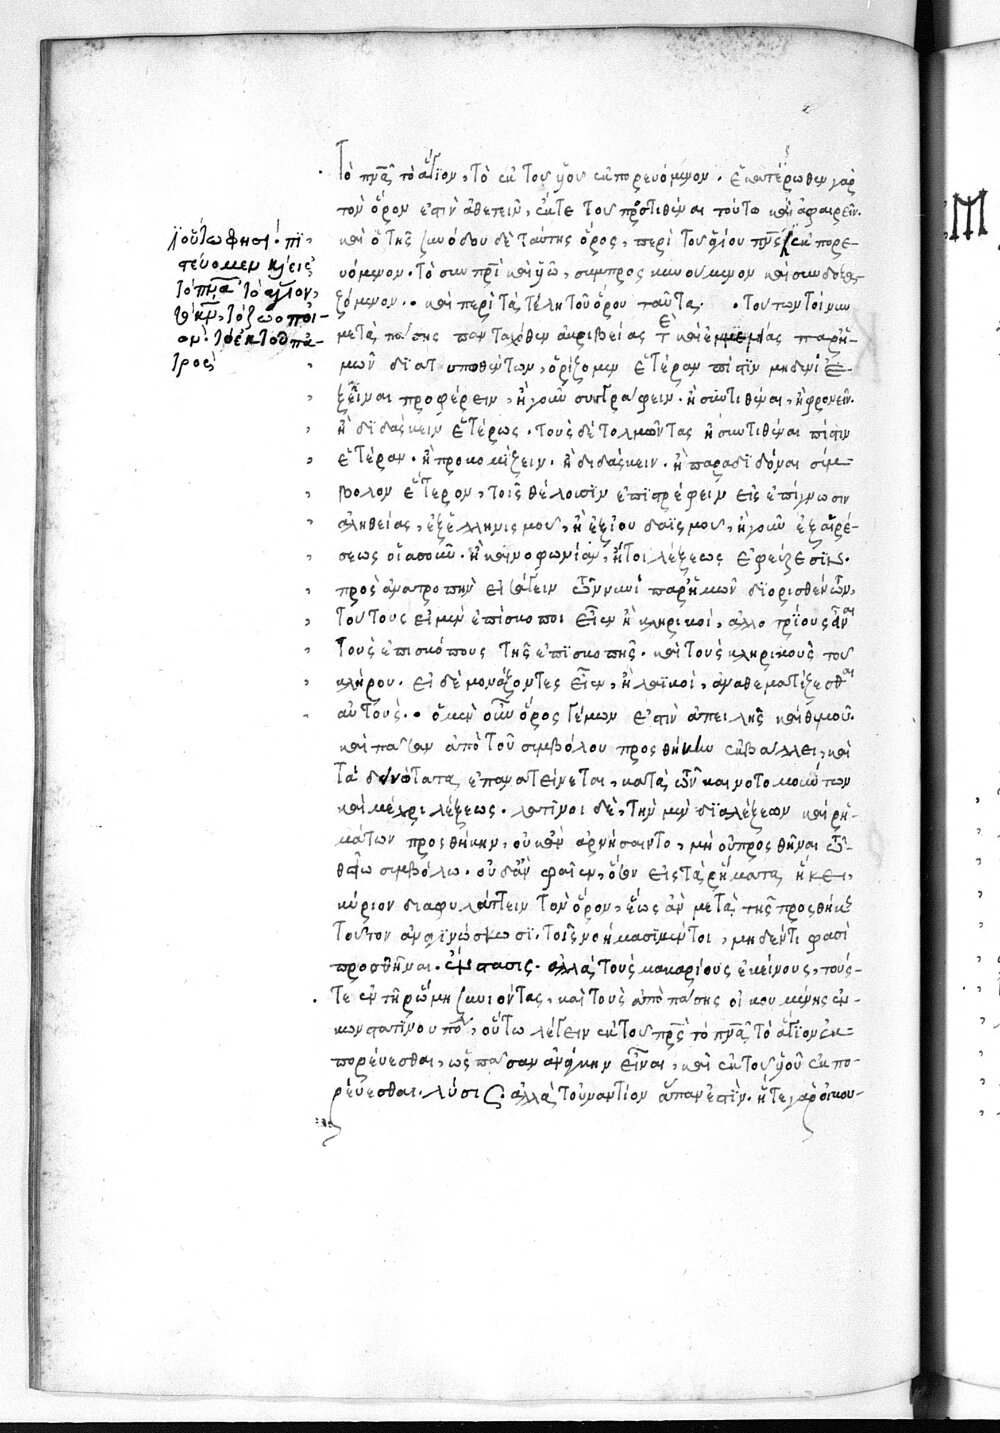 Τὸ πνᾶ τὸ ἅγιον, τὸ ἐκ τοῦ υἱοῦ ἐκπορευόμενον. ἑκατέρωθεν γὰρ
τὸν ὅρον ἐστὶν ἀθετεῖν, ἔκ τε τοῦ προστιθέναι τούτω καὶ ἀφαιρεῖν.
καὶ ὁ τῆς συνόδου δὲ ταύτης ὅρος, περὶ τοῦ ἁγίου πνς ἐκπορε-
υόμενον. τὸ σὺν πρὶ καὶ υἱῶ, συμπροσκυνούμενον καὶ συνδοξα-
ζόμενον. καὶ περὶ τὰ τέλη τοῦ ὅρου ταῦτα. τούτων τοίνυν
μετὰ πάσης πανταχόθεν ἀκριβείας τε καὶ ἐμμελείας παρ' ἡ-
μῶν διατυποθέντων, ὁρίζομεν ἑτέραν πίστιν μηδενὶ ἐ-
ξεῖναι προφέρειν, ἢ γοῦν συγγράφειν. ἢ συντιθέναι, ἢ φρονεῖν.
ἢ διδάσκειν ἑτέρως. τοὺς δὲ τολμῶντας ἢ συντιθέναι πίστιν
ἑτέραν. ἢ προκομίζειν. ἢ διδάσκειν. ἢ παραδιδόναι σύμ-
βολον ἕτερον, τοῖς θέλουσιν ἐπιστρέφειν εἰς ἐπίγνωσιν
ἀληθείας, ἐξ ἑλληνισμοῦ, ἢ ἐξ ἰουδαϊσμοῦ, ἢ γοῦν ἐξ αἱρέ-
σεως οἱασοῦν. ἢ καινοφωνίαν, ἤτοι λέξεως ἐφεύρεσιν
πρὸς ἀνατροπὴν εἰσάγειν τῶν νυνὶ παρ' ἡμῶν διορισθέντων,
τούτους εἰ μὲν ἐπίσκοποι εἶεν ἢ κληρικοὶ, ἀλλοτρίους εἶναι
τοὺς ἐπισκόπους τῆς ἐπισκοπῆς. καὶ τοὺς κληρικοὺς τοῦ
κλήρου. εἰ δὲ μονάζοντες εἶεν, ἢ λαϊκοὶ, ἀναθεματίζεσθαι
αὐτούς. ὁ μὲν οὖν ὅρος γέμων ἐστὶν ἀπειλῆς καὶ θυμοῦ.
καὶ πᾶσαν ἀπὸ τοῦ συμβόλου προσθήκην ἐκβάλλει, καὶ
τὰ δεινότατα ἐπανατείνεται, κατὰ τῶν καινοτομούντων
καὶ μέχρι λέξεως. λατῖνοι δὲ, τὴν μὲν διαλέξεων καὶ ῥη-
μάτων προσθήκην, οὐκ ἂν ἀρνήσαιντο, μὴ οὐ προσθῆναι τῶ
θείω συμβόλω. οὐδ' ἂν φαῖεν, ὅσον εἰς τὰ ῥήματα ἥκει,
κύριον διαφυλάττειν τὸν ὅρον, ἕως ἂν μετὰ τῆς προσθήκης
τοῦτον ἀναγινώσκωσι. τοῖς νοήμασι μέντοι, μηδέν τι φασὶ
προσθῆναι. ἔνστασις. ἀλλὰ τοὺς μακαρίους ἐκείνους, τούς-
τε ἐν τῇ ῥώμη συνιόντας, καὶ τοὺς ἀπὸ πάσης οἰκουμένης ἐν
κωνσταντίνου πόλ, οὕτω λέγειν ἐκ τοῦ πρς τὸ πνᾶ τὸ ἅγιον ἐκ-
πορεύεσθαι, ὡς πᾶσαν ἀνάγκην εἶναι, καὶ ἐκ τοῦ υἱοῦ ἐκπο-
ρεύεσθαι. λύσις. ἀλλὰ τοὐναντίον ἅπαν ἐστὶν. ἥ τε γὰρ οἰκου-
οὕτω φησί· πι-
στεύομεν κ εἰς
τὸ πνᾶ τὸ ἅγιον,
τὸ κν, τὸ ζωοποι-
όν. τὸ ἐκ τοῦ πα-
τρὸς